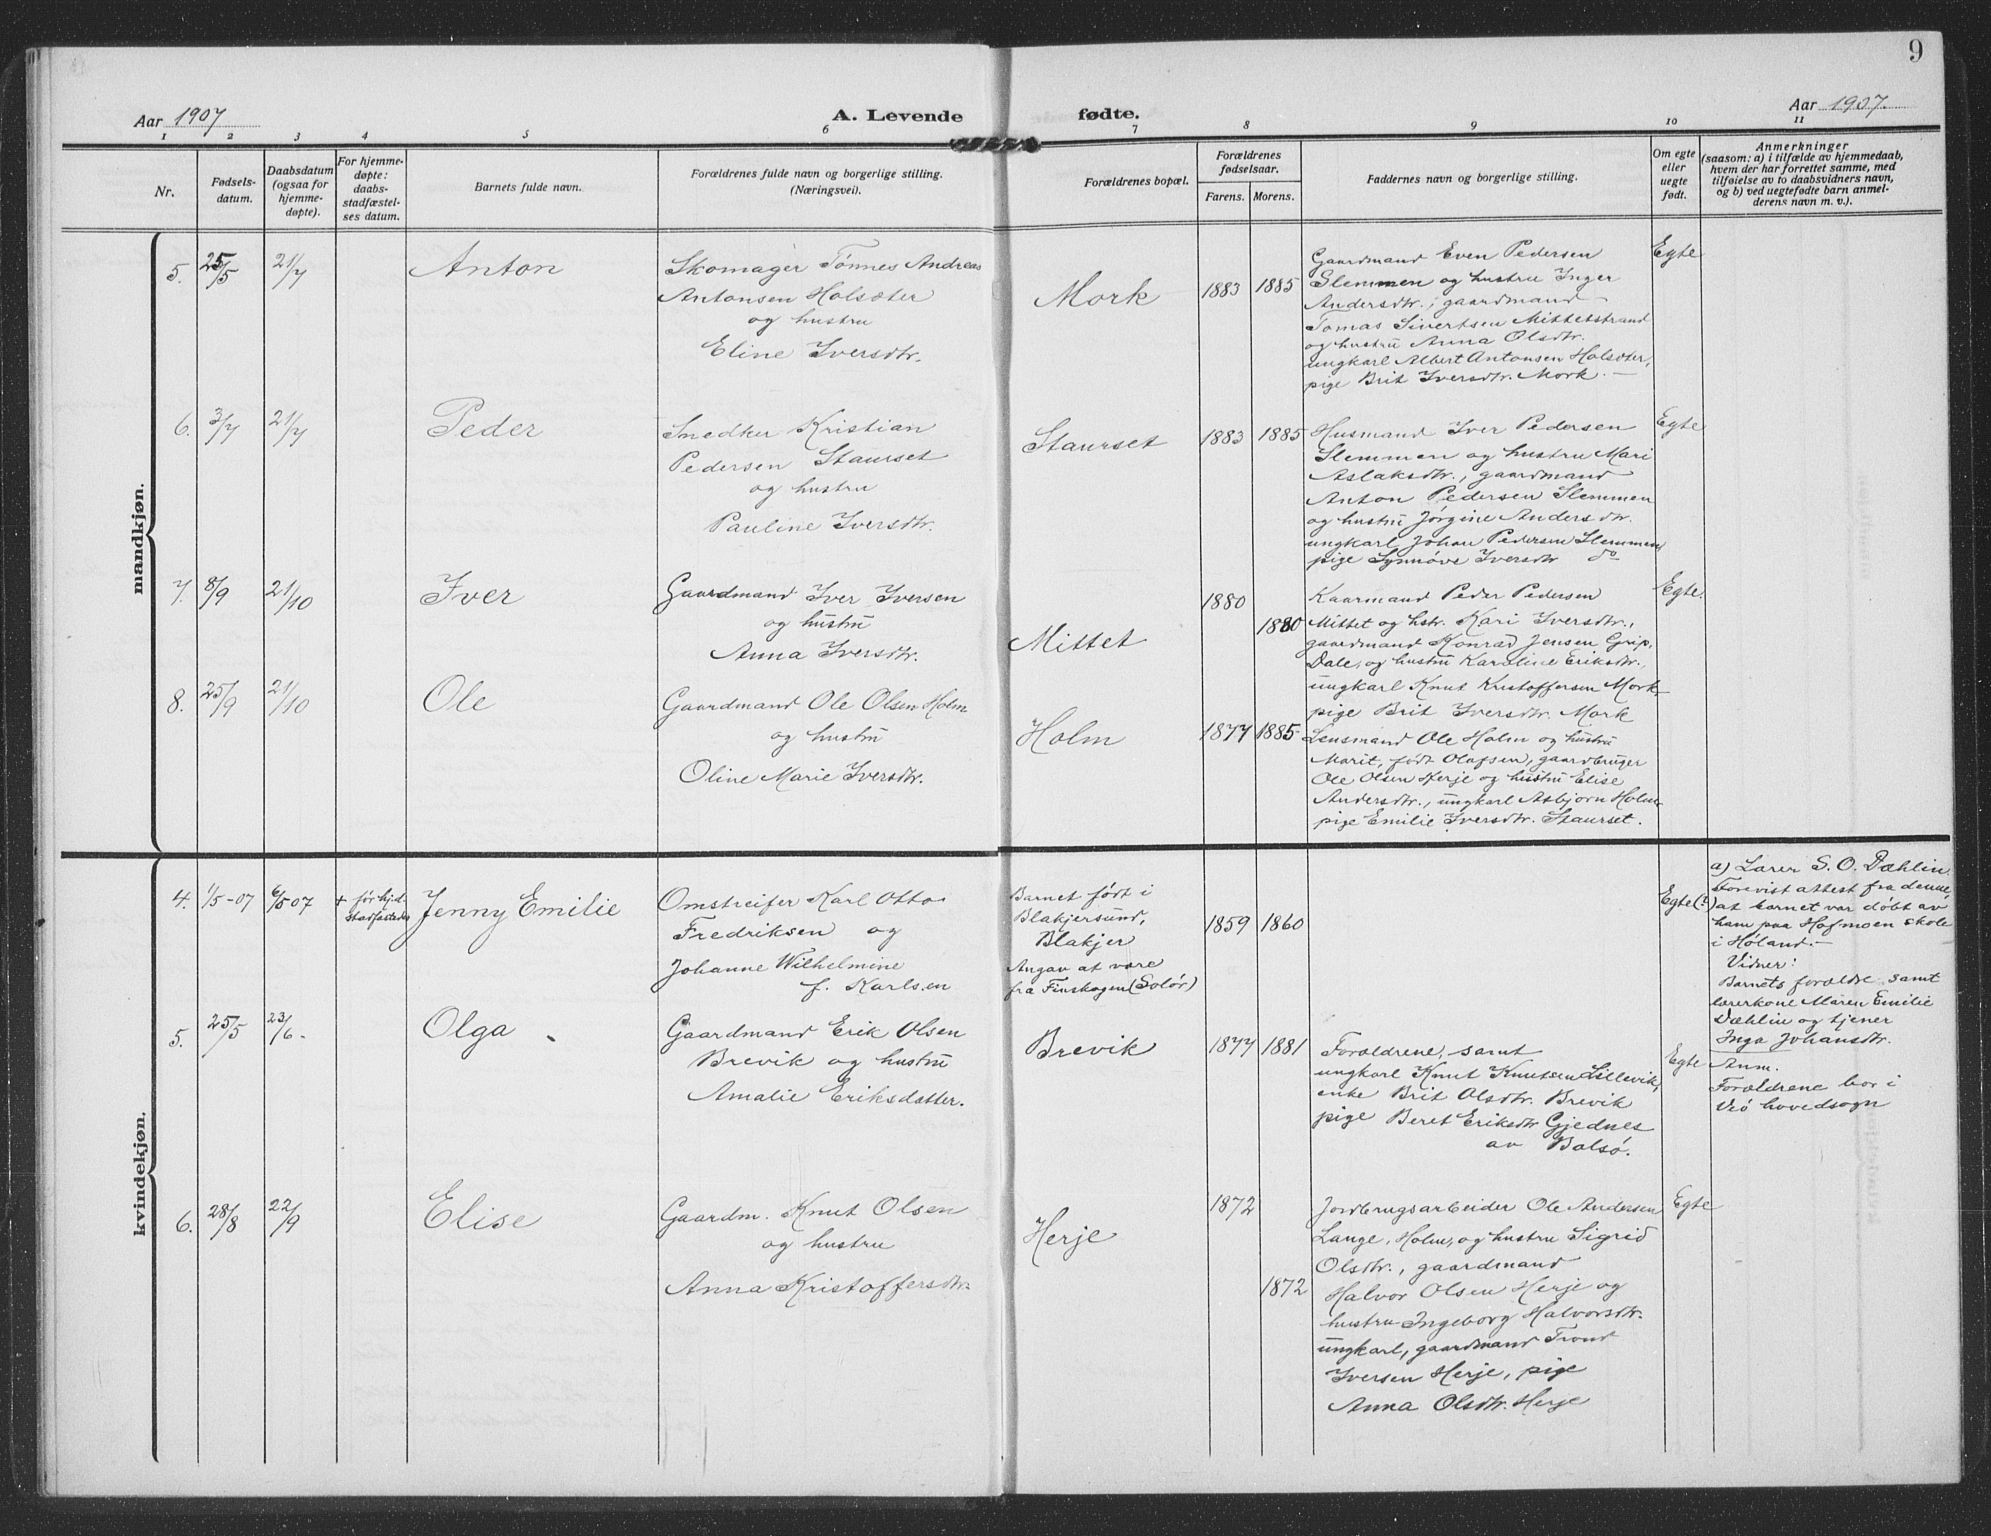 9
Aar 1907
A. Levende fødte.
Aar 1907.
1 2 3 4 5 6 7 8 9 10 11
Nr.
Fødsels-
datum.
Daabsdatum
(ogsaa for
hjemme-
døpte).
For hjemme-
døpte:
daabs-
stadfæstel-
ses datum.
Barnets fulde navn.
Forældrenes fulde navn og borgerlige stilling.
(Næringsvei).
Forældrenes bopæl.
Forældrenes
fødselsaar.
Farens. Morens.
Faddernes navn og borgerlige stilling.
Om egte
eller
uegte
født.
Anmerkninger
(saasom: a) i tilfælde av hjemmedaab,
hvem der har forrettet samme, med
tilføielse av to daabsvidners navn,
og b) ved uegtefødte barn anmel-
derens navn m. v.).
mandkjøn.
5. 25/5 21/7 Anton
Skomager Tønnes Andreas
Antonsen Holsæter
og hustru
Eline Iversdtr.
Mork 1883 1885
Gaardmand Even Pedersen
Slemmen og hustru Inger
Andersdtr., gaardmand
Tomas Sivertsen Mittetstrand
og hustru Anna Olsdtr.
ungkarl Albert Antonsen Holsæter,
pige Brit Iversdtr. Mork. -
Egte
6. 3/7 21/7 Peder
Snedker Kristian
Pedersen Staurset
og hustru
Pauline Iversdtr.
Staurset 1883 1885
Husmand Iver Pedersen
Slemmen og hustru Mari
Aslaksdtr., gaardmand
Anton Pedersen Slemmen
og hustru Jørgine Andersdtr.
ungkarl Johan Pedersen Slemmen
pige Synnøve Iversdtr do
Egte
7. 8/9 21/10 Iver
Gaardmand Iver Iversen
og hustru
Anna Iversdtr.
Mittet 1880 1880
Kaarmand Peder Pedersen
Mittet og hstr. Kari Iversdtr.,
gaardmand Konrad Jensen Grip,
Dale, og hustru Karoline Eriksdtr.,
ungkarl Knut Kristoffersen Mork
pige Brit Iversdtr. Mork
Egte.
8. 25/9 21/10 Ole
Gaardmand Ole Olsen Holm
og hustru
Oline Marie Iversdtr.
Holm 1877 1885
Lensmand Ole Holm og hustru
Marit, født Olafsen, gaardbruger
Ole Olsen Herje og hustru Elise
Andersdtr., ungkarl Asbjørn Holm,
pige Emilie Iversdtr. Staurset.
kvindekjøn.
4. 1/5-07 6/5 07 + før hjd.
stadfæstedes
Jenny Emilie
Omstreifer Karl Otto
Fredriksen og
Johanne Wilhelmine
f. Karlsen
Barnet født i
Blakjersund,
Blakjer
Angav at være
fra Finskogen (Solør)
1859 1860
Egte(?)
a) Lærer S. O. Dæhlin.
Forevist attest fra denne,
at barnet var døbt av
ham paa Hofmoen skole
i Høland. -
Vidner:
Barnets forældre samt
lærerkone Maren Emilie
Dæhlin og tjener
Inga Johansdtr.
5. 25/5 23/6- Olga
Gaardmand Erik Olsen
Brevik og hustru
Amalie Eriksdatter.
Brevik 1877 1881
Forældrene, samt
ungkarl Knut Knutsen Lillevik,
enke Brit Olsdtr. Brevik
pige Beret Eriksdtr Gjednes
av Bolsø.
Egte
Anm.
Forældrene bor i
Veø hovedsogn
6. 28/8 22/9 Elise
Gaardm. Knut Olsen
og hustru
Anna Kristoffersdtr.
Herje 1872 1872
Jordbrugsarbeider Ole Andersen
Lange, Holm, og hustru Sigrid
Olsdtr., gaardmand
Halvor Olsen Herje og
hustru Ingeborg Halvorsdtr.
ungkarl, gaardmand Trond
Iversen Herje, pige
Anna Olsdtr. Herje
Egte